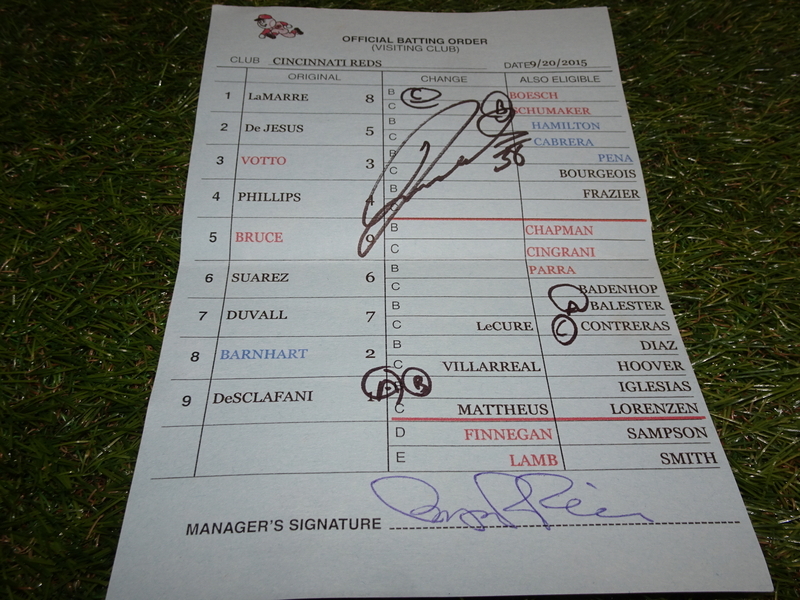 OFFICIAL BATTING ORDER
(VISITING CLUB)
CLUB CINCINNATI REDS DATE 9/20/2015
ORIGINAL CHANGE ALSO ELIGIBLE
1 LaMARRE 8 B C BOESCH
C SCHUMAKER
2 De JESUS 5 B HAMILTON
C CABRERA
38
3 VOTTO 3 B PENA
C BOURGEOIS
4 PHILLIPS 4 B FRAZIER
5 BRUCE 9 B CHAPMAN
C CINGRANI
6 SUAREZ 6 B PARRA
C BADENHOP
7 DUVALL 7 B A BALESTER
C LeCURE C CONTRERAS
8 BARNHART 2 B DIAZ
C VILLARREAL HOOVER
9 DeSCLAFANI 1 A B IGLESIAS
C MATTHEUS LORENZEN
D FINNEGAN SAMPSON
E LAMB SMITH
MANAGER'S SIGNATURE